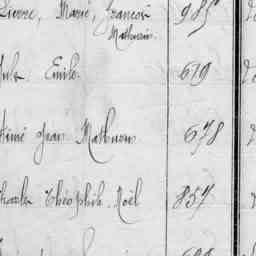 Pierre, Marie, François 985
Mathurin
Jules Emile 619
Aimé Jean Mathurin 678
Charles Théophile Noël 857